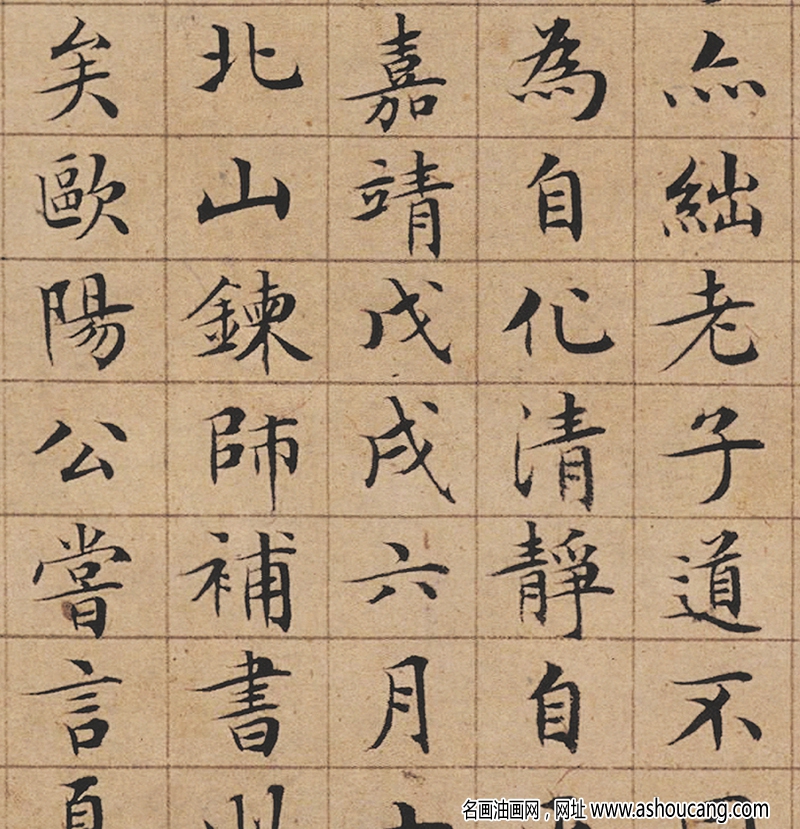 亦絀老子道不
為自化清靜自
嘉靖戊戌六月
北山鍊師補書此
矣歐陽公嘗言
名画油画网，网址 www.ashoucang.com